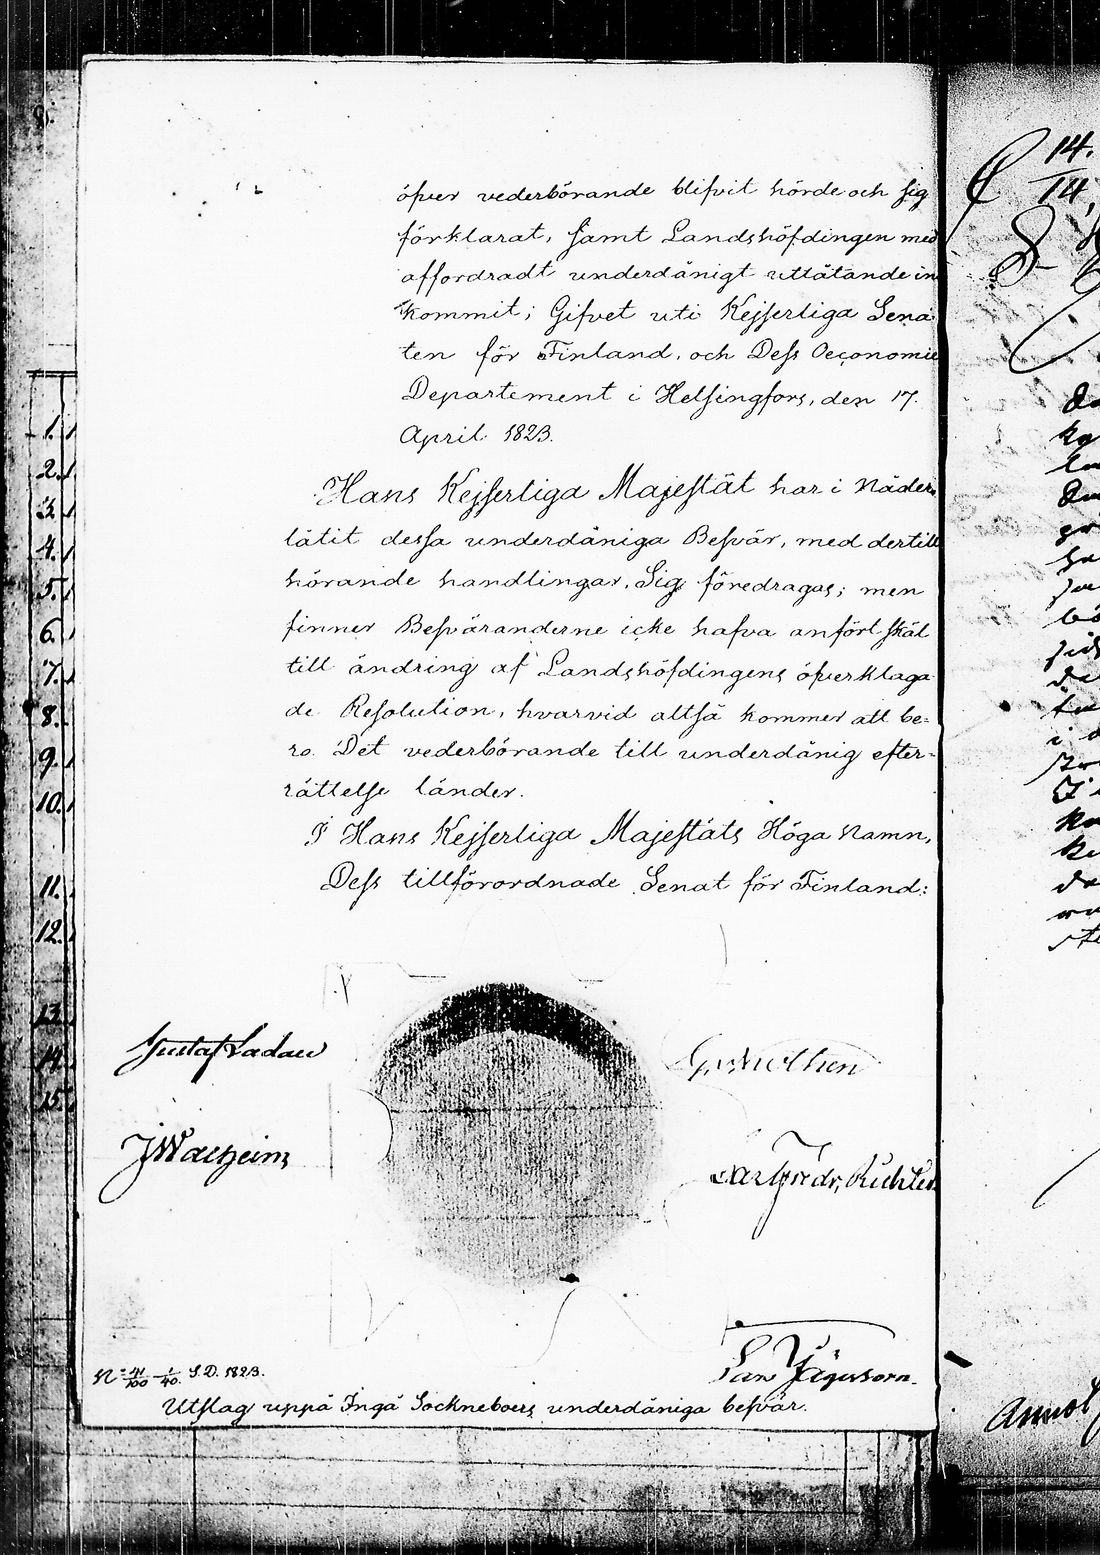 öfver vederbörande blifvit hörde och sig
förklarat, samt Landshöfdingen med
affordradt underdånigt utlåtande in
kommit; Gifvet uti Kejserliga Sena
ten för Finland, och Dess Oeconomie
Departement i Helsingfors, den 17.
April 1823.
Hans Kejserliga Majestät har i Nåder
låtit dessa underdåniga Besvär, med dertill
hörande handlingar, Sig föredragas; men
finner Besväranderne icke hafva anfört skäl
till ändring af Landshöfdingens öfverklaga
de Resolution, hvarvid altså kommer att be=
ro. Det vederbörande till underdånig efter=
rättelse länder.
I Hans Kejserliga Majestäts Höga Namn,
Dess tillförordnade Senat för Finland:
Gustaf Ladau
JWalheim
Carl Fredr. Richter
N= 41/100 1/40. S.D. 1823.
Utslag uppå Ingå Sockneboers underdåniga besvär.
8.
1.
2.
3.
4.
5.
6.
7.
8.
9.
10.
11.
12.
13.
14.
15.
14.
14.